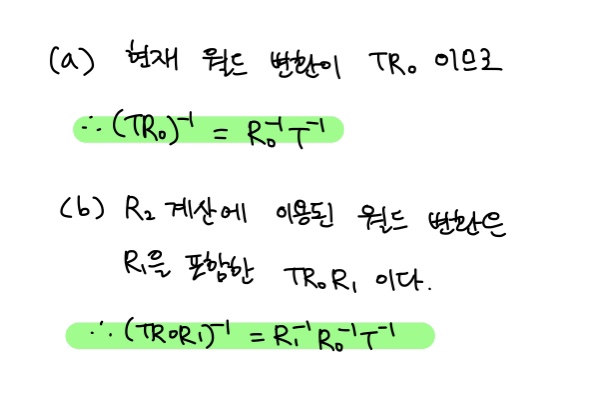 (a) 현재 월드 변환이 TR₀ 이므로
∴ (TR₀)⁻¹ = R₀⁻¹T⁻¹
(b) R₂ 계산에 이용된 월드 변환은
R₁을 포함한 TR₀R₁ 이다.
∴ (TR₀R₁)⁻¹ = R₁⁻¹R₀⁻¹T⁻¹